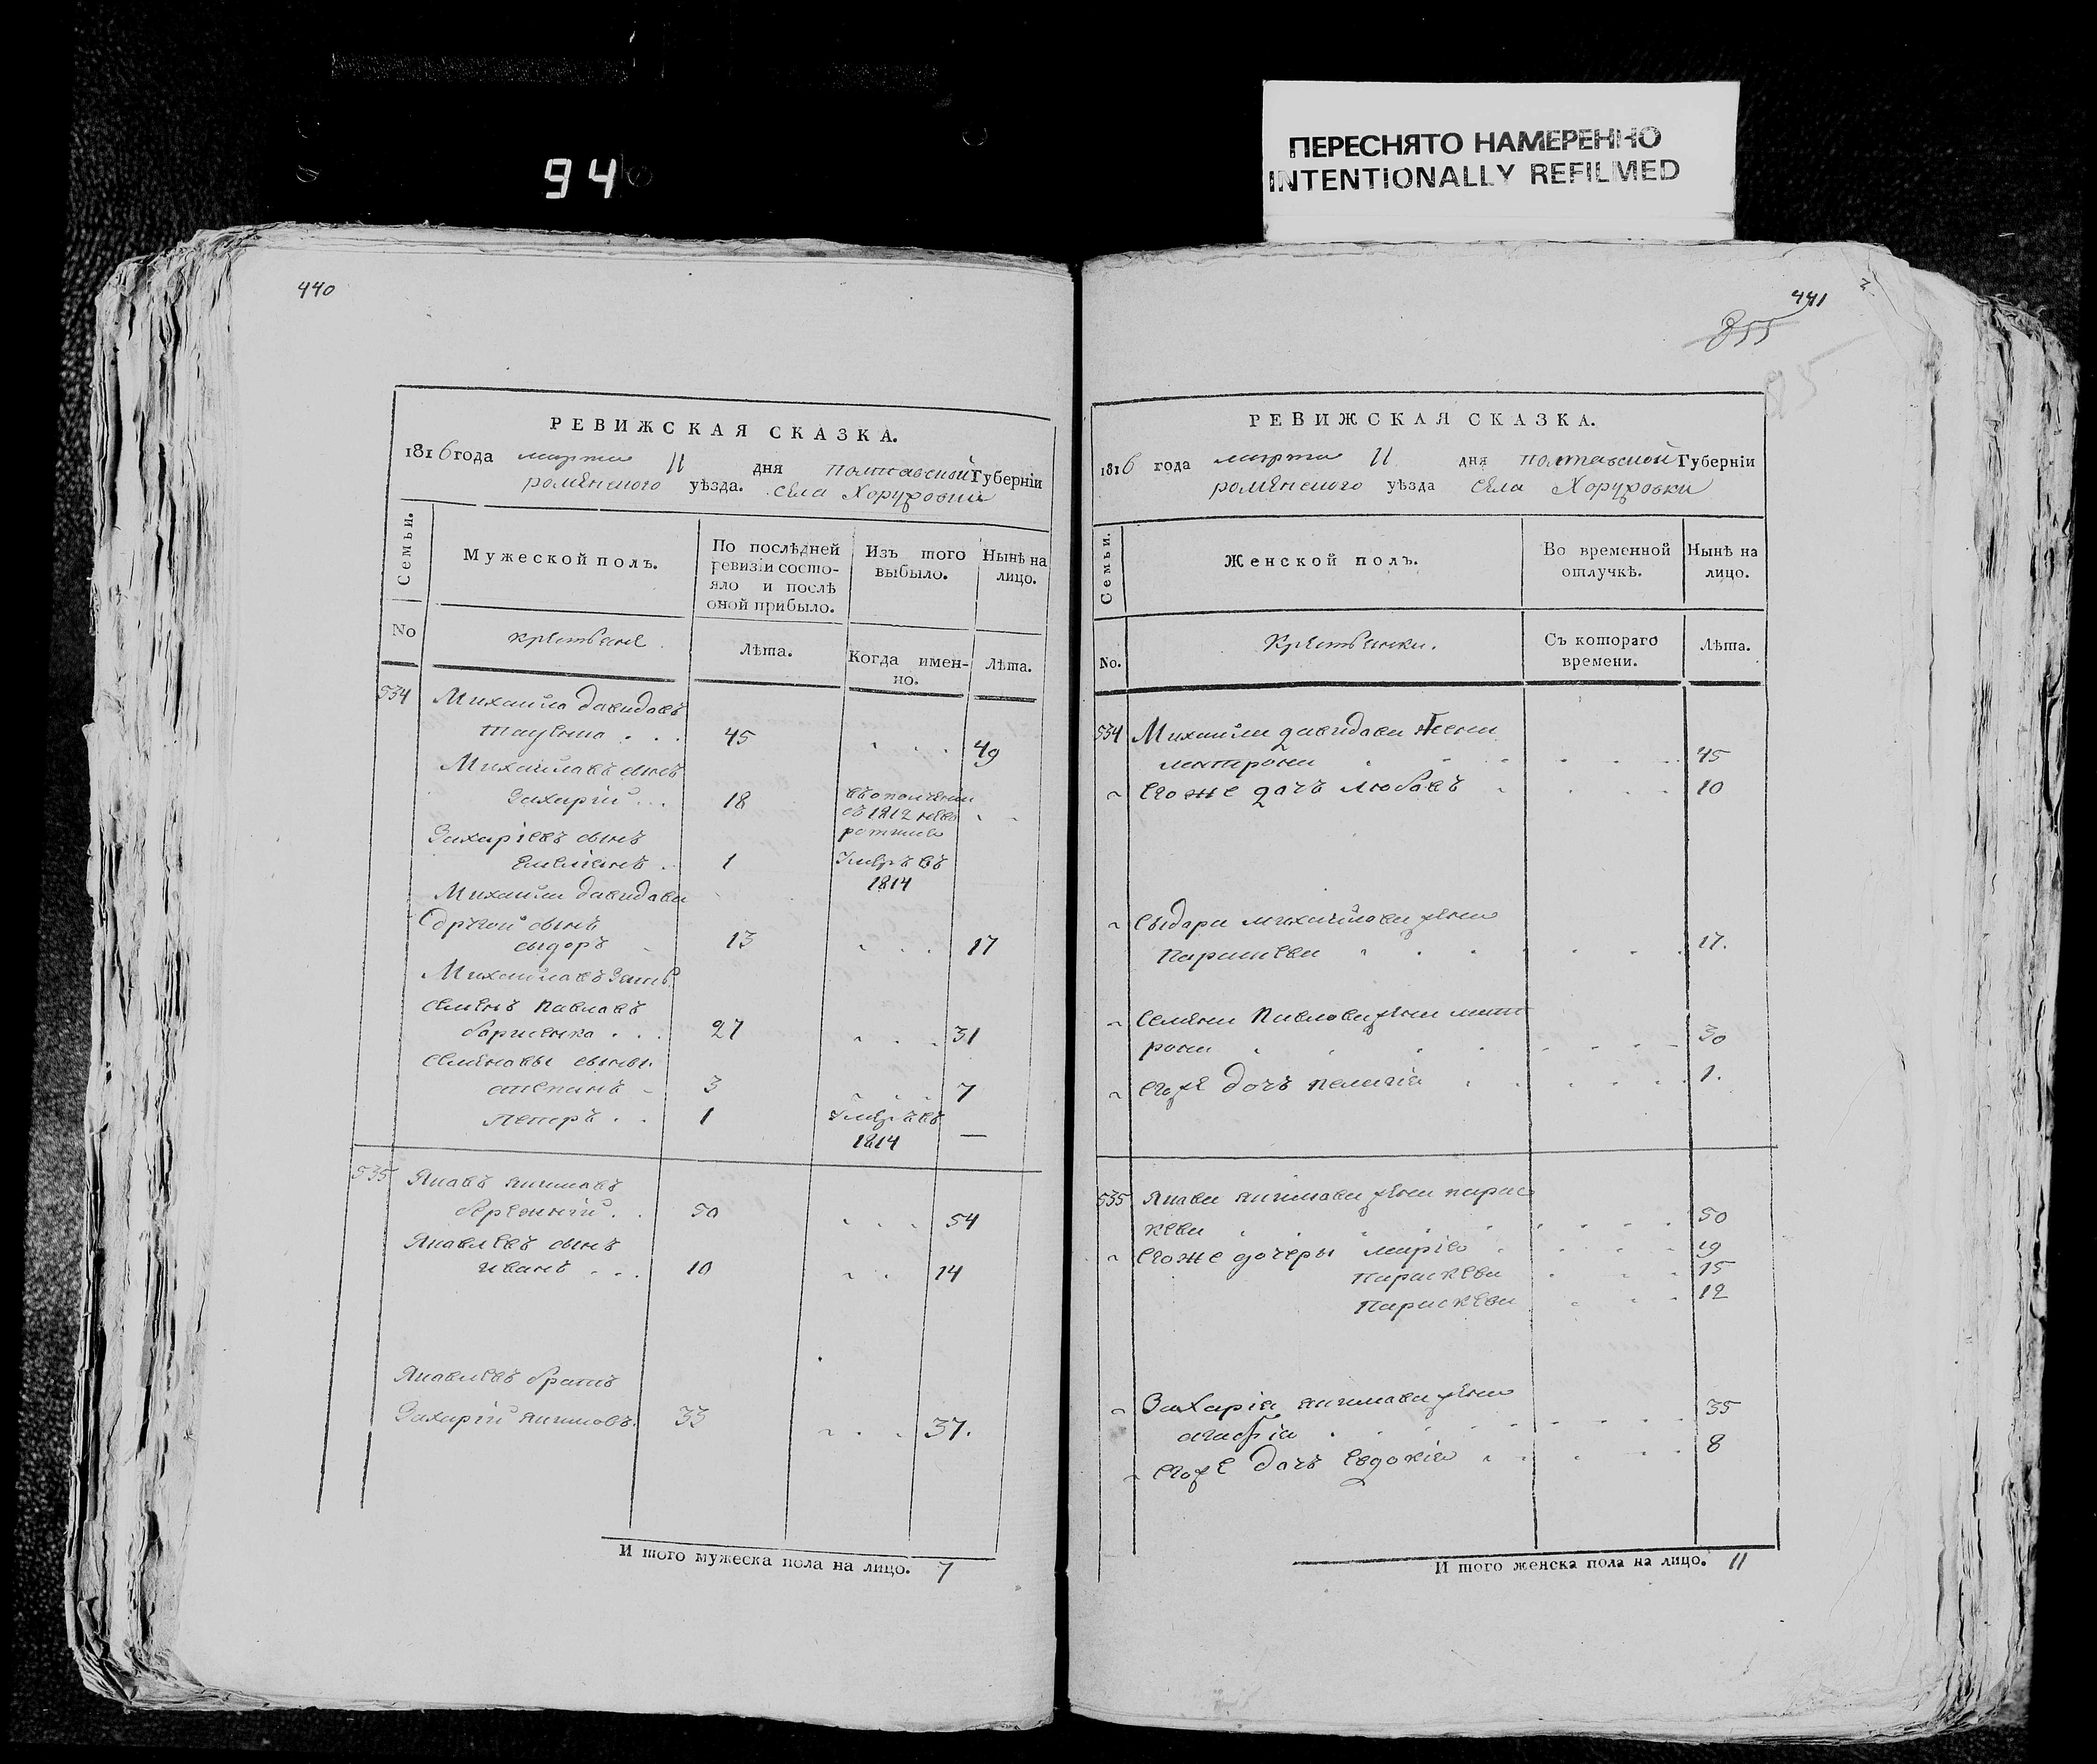 94
ПЕРЕСНЯТО НАМЕРЕННО
INTENTIONALLY REFILMED
440
РЕВИЖСКАЯ СКАЗКА.
1816 года марта 11 дня полтавской Губерніи
роменского уѣзда. села Хоружовки
Семьи.
Мужеской полъ.
По послѣдней ревизіи состояло и послѣ оной прибыло.
Изъ того выбыло.
Нынѣ на лицо.
No
крестьяне
Лѣта.
Когда именно.
Лѣта.
534 Михайла давидовъ
45 49
Михайловъ сынъ
Захарій 18 въ 1812
Захаріевъ сынъ
1 Умеръ въ
1814
Михайла давидова
другой сынъ
сыдоръ 13 17
Михайловъ зять
семенъ Павловъ
27 31
семеновы сыны
степанъ 3 7
петръ 1 Умеръ въ
1814 —
535 Яковъ
50 54
Яковлевъ сынъ
иванъ 10 14
Яковлевъ братъ
Захарій 33 37.
И того мужеска пола на лицо. 7
441
855
РЕВИЖСКАЯ СКАЗКА.
1816 года марта 11 дня полтавской Губерніи
роменского уѣзда села Хоружовки
Семьи.
Женской полъ.
Во временной отлучкѣ.
Нынѣ на лицо.
No.
Крестьянки.
Съ котораго времени.
Лѣта.
534 Михайла давидова жена
45
его же дочь любовь 10
сыдора михайлова жена
Параскева 17.
семена Павлова жена мат
рона 30
его же дочь пелагія 1.
535 Якова жена парас
кева 50
его же дочеры марія 19
Параскева 15
Параскева 12
Захарія жена
агафія 35
его же дочь евдокія 8
И того женска пола на лицо. 11